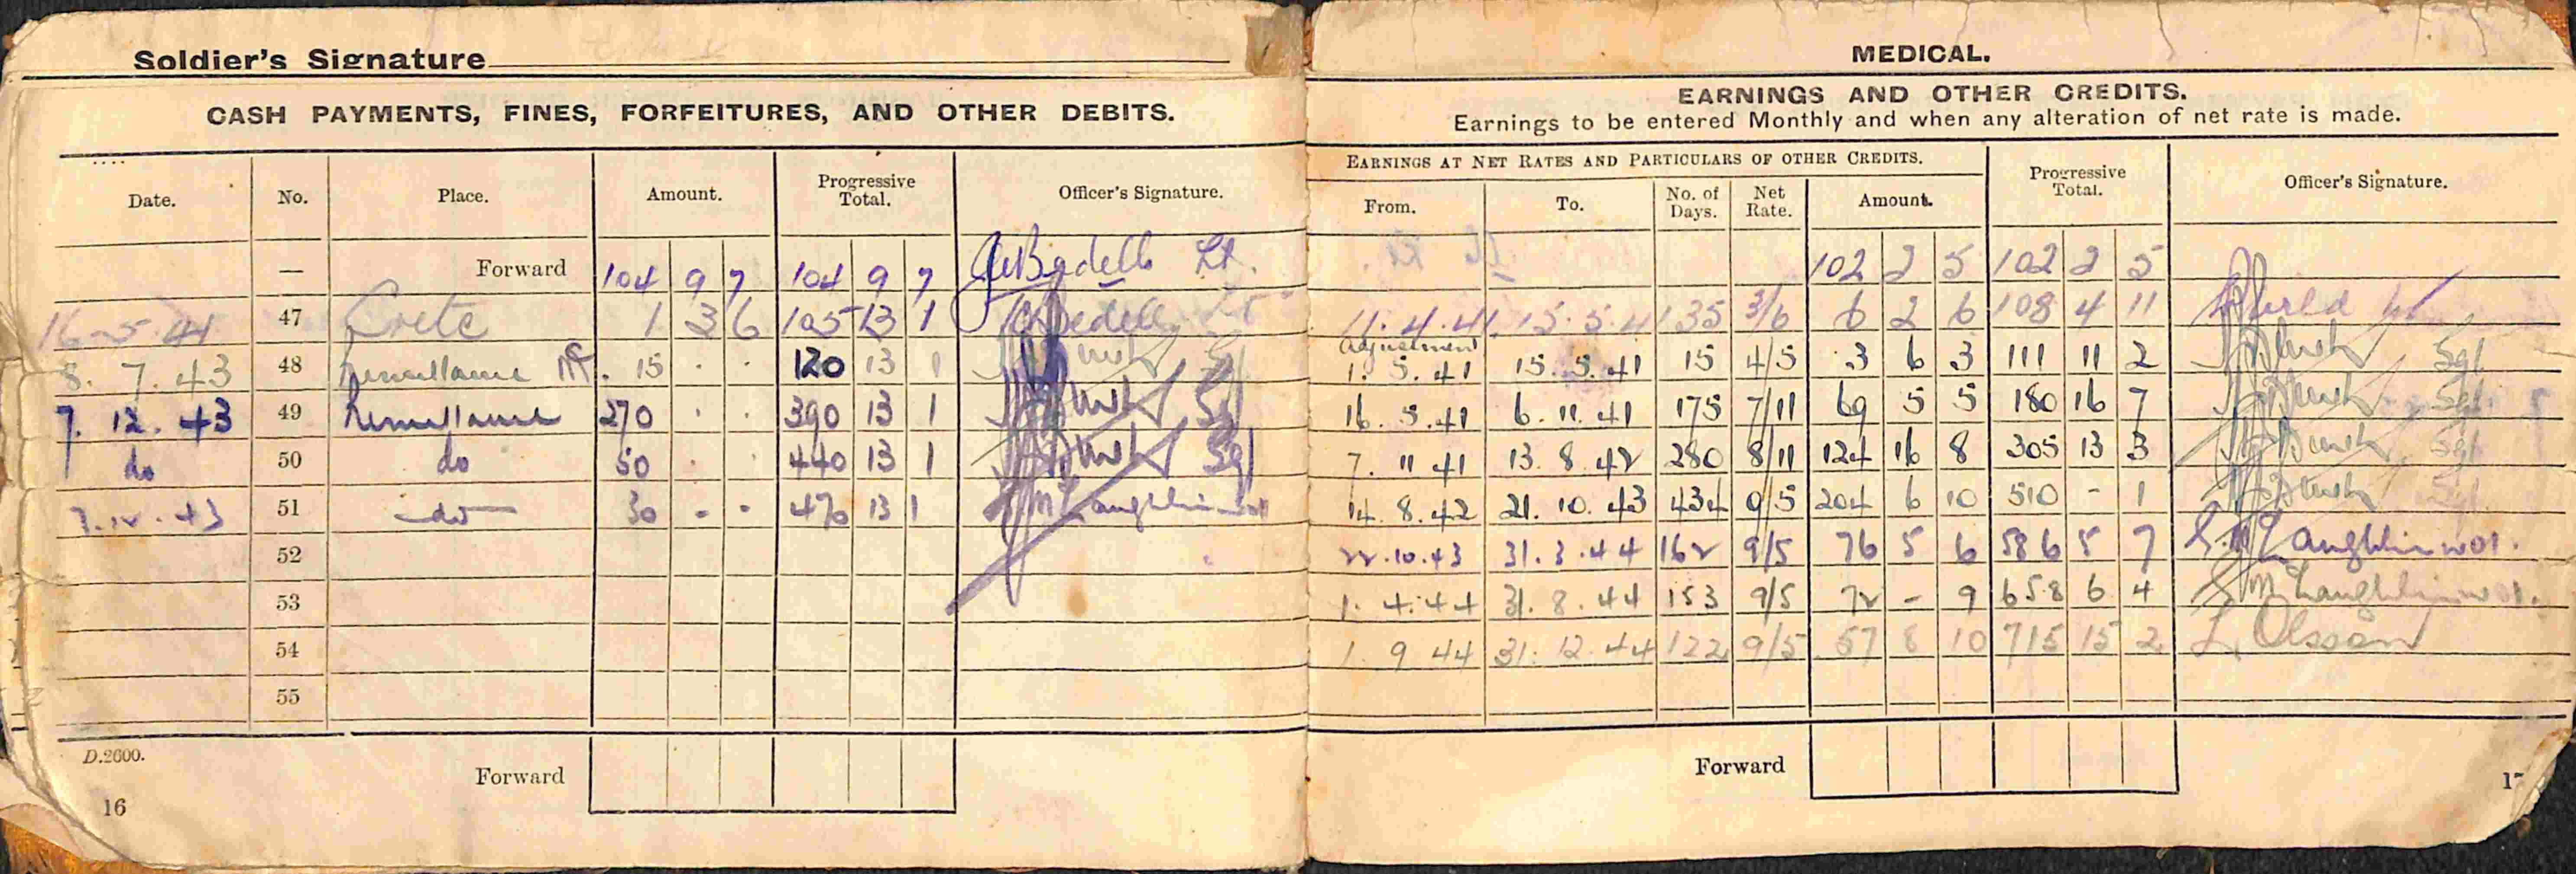 Soldier's Signature
CASH PAYMENTS, FINES, FORFEITURES, AND OTHER DEBITS.
Date. No. Place. Amount. Progressive Total. Officer's Signature.
— Forward 104 9 7 104 9 7 Bedells Lt.
16-5-41 47 Crete 1 3 6 105 13 1 Bedells Lt
8. 7. 43 48 15 . . 120 13 1 Sgt
7. 12. 43 49 270 . . 390 13 1 Sgt
do 50 do 50 . . 440 13 1 Sgt
7.12.43 51 do 30 - - 470 13 1 McLaughlin
52
53
54
55
Forward
D.2600.
16
MEDICAL.
EARNINGS AND OTHER CREDITS.
Earnings to be entered Monthly and when any alteration of net rate is made.
EARNINGS AT NET RATES AND PARTICULARS OF OTHER CREDITS.
From. To. No. of Days. Net Rate. Amount. Progressive Total. Officer's Signature.
102 2 5 102 2 5
11.4.41 15.5.41 35 3/6 6 2 6 108 4 11
adjustment
1. 5. 41 15. 5. 41 15 4/5 3 6 3 111 11 2 Sgt
16. 5. 41 6. 11. 41 175 7/11 69 5 5 180 16 7 Sgt
7. 11 41 13. 8. 42 280 8/11 124 16 8 305 13 3 Sgt
14. 8. 42 21. 10. 43 434 9/5 204 6 10 510 - 1 Sgt
22.10.43 31. 3. 44 162 9/5 76 5 6 586 5 7 McLaughlin WO1.
1. 4. 44 31. 8. 44 153 9/5 72 - 9 658 6 4 McLaughlin WO1.
1. 9 44 31. 12. 44 122 9/5 57 8 10 715 15 2 L. Olsson
Forward